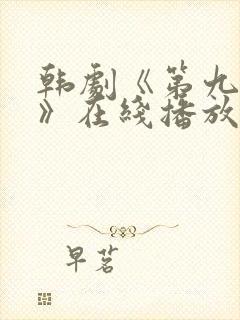 韩劇《第九
》在綫播放
早茗